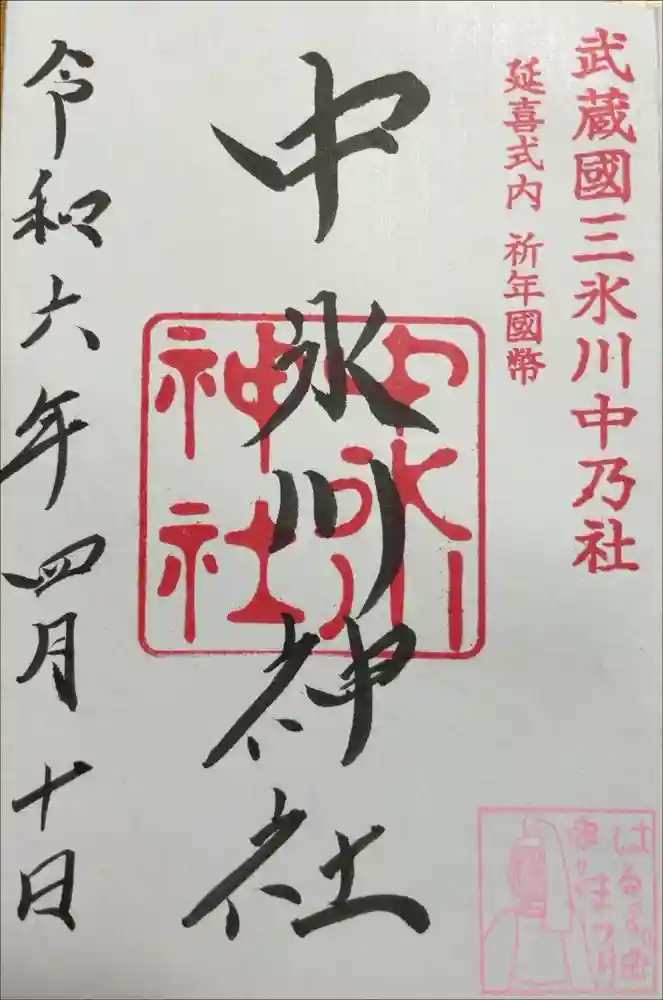 武蔵國三氷川中乃社
延喜式内 祈年國幣
中氷川神社
中氷川
神社
令和六年四月十日
まつり